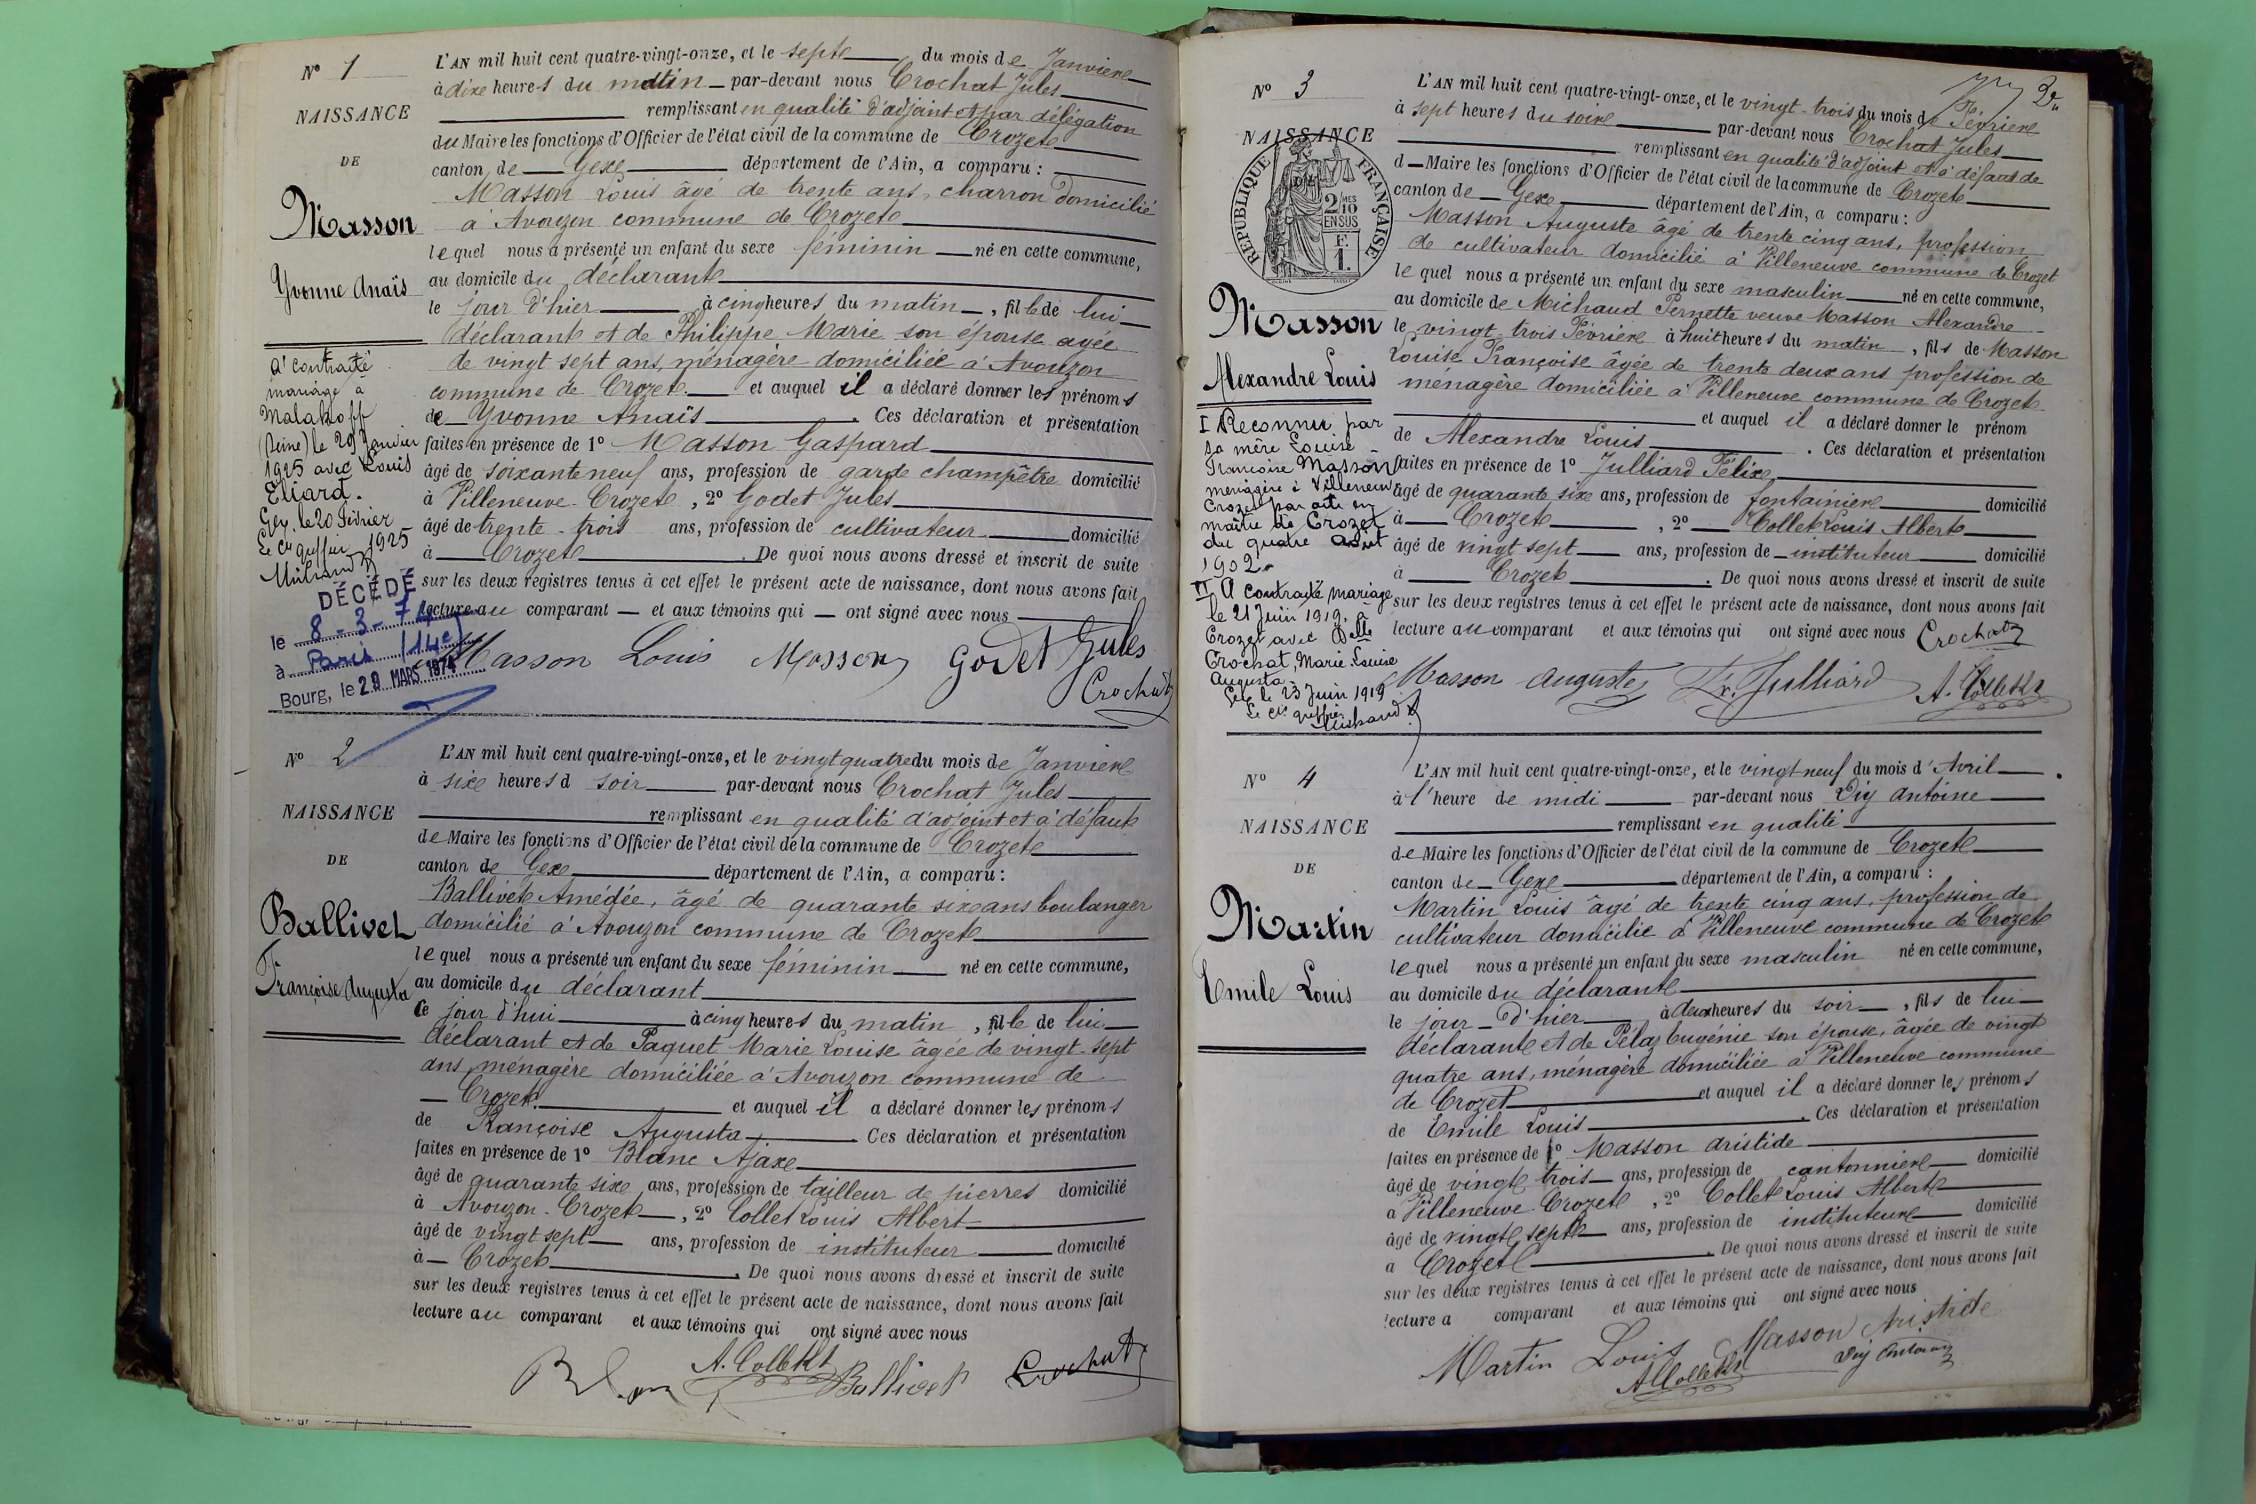 N° 1
NAISSANCE
DE
Masson
Yvonne Anaïs
A contracté
mariage à
Malakoff
(Seine) le 29 Janvier
1925 avec Louis
Eliard.
Gex, le 20 Février
1925
Le Cis greffier
DÉCÉDÉ
le 8-3-74
à Paris (14e)
Bourg, le 29 MARS 1974
L'AN mil huit cent quatre-vingt-onze, et le sept du mois de Janvier
à dix heures du matin par-devant nous Crochat Jules
remplissant en qualité d'adjoint et par délégation
du Maire les fonctions d'Officier de l'état civil de la commune de Crozet
canton de Gex département de l'Ain, a comparu :
Masson Louis âgé de trente ans, charron domicilié
à Avouzon commune de Crozet
lequel nous a présenté un enfant du sexe féminin né en cette commune,
au domicile du déclarant
le jour d'hier à cinq heures du matin, fille de lui
déclarant et de Philippe Marie son épouse agée
de vingt sept ans, ménagère domiciliée à Avouzon
commune de Crozet. et auquel il a déclaré donner les prénoms
de Yvonne Anaïs . Ces déclaration et présentation
faites en présence de 1° Masson Gaspard
âgé de soixante neuf ans, profession de garde champêtre domicilié
à Villeneuve-Crozet, 2° Godet Jules
âgé de trente-trois ans, profession de cultivateur domicilié
à Crozet . De quoi nous avons dressé et inscrit de suite
sur les deux registres tenus à cet effet le présent acte de naissance, dont nous avons fait
lecture au comparant et aux témoins qui ont signé avec nous
Masson Louis Masson Godet Jules
Crochat
N° 2
NAISSANCE
DE
Ballivet
Françoise Augusta
L'AN mil huit cent quatre-vingt-onze, et le vingt quatre du mois de Janvier
à six heures d soir par-devant nous Crochat Jules
remplissant en qualité d'adjoint et à défaut
de Maire les fonctions d'Officier de l'état civil de la commune de Crozet
canton de Gex département de l'Ain, a comparu :
Ballivet Amédée, âgé de quarante six ans boulanger
domicilié à Avouzon commune de Crozet
lequel nous a présenté un enfant du sexe féminin né en cette commune,
au domicile du déclarant
Ce jour d'hui à cinq heures du matin, fille de lui
déclarant et de Paquet Marie Louise âgée de vingt-sept
ans, ménagère domiciliée à Avouzon commune de
Crozet. et auquel il a déclaré donner les prénoms
de Françoise Augusta . Ces déclaration et présentation
faites en présence de 1° Blanc Ajax
âgé de quarante six ans, profession de tailleur de pierres domicilié
à Avouzon-Crozet, 2° Collet Louis Albert
âgé de vingt sept ans, profession de instituteur domicilié
à Crozet . De quoi nous avons dressé et inscrit de suite
sur les deux registres tenus à cet effet le présent acte de naissance, dont nous avons fait
lecture au comparant et aux témoins qui ont signé avec nous
A. Collet Ballivet Crochat
2
N° 3
NAISSANCE
RÉPUBLIQUE FRANÇAISE
2 MES
10
EN SUS
F.
1.
Masson
Alexandre Louis
I Reconnu par
sa mère Louise
Françoise Masson
ménagère à Villeneuve
Crozet par acte en
mairie de Crozet
du quatre août
1902.
II A contracté mariage
le 21 Juin 1919, à
Crozet avec Delle
Crochat, Marie-Louise
Augusta.
Gex le 23 Juin 1919
Le Cis greffier
L'AN mil huit cent quatre-vingt-onze, et le vingt-trois du mois de Février
à sept heures du soir par-devant nous Crochat Jules
remplissant en qualité d'adjoint et à défaut de
d Maire les fonctions d'Officier de l'état civil de la commune de Crozet
canton de Gex département de l'Ain, a comparu :
Masson Auguste âgé de trente cinq ans, profession
de cultivateur domicilié à Villeneuve commune de Crozet
lequel nous a présenté un enfant du sexe masculin né en cette commune,
au domicile de Michaud Pernette veuve Masson Alexandre
le vingt-trois Février à huit heures du matin, fils de Masson
Louise Françoise âgée de trente deux ans profession de
ménagère domiciliée à Villeneuve commune de Crozet
et auquel il a déclaré donner le prénom
de Alexandre Louis . Ces déclaration et présentation
faites en présence de 1° Julliard Félix
âgé de quarante six ans, profession de fontainier domicilié
à Crozet, 2° Collet Louis Albert
âgé de vingt sept ans, profession de instituteur domicilié
à Crozet . De quoi nous avons dressé et inscrit de suite
sur les deux registres tenus à cet effet le présent acte de naissance, dont nous avons fait
lecture au comparant et aux témoins qui ont signé avec nous Crochat
Masson Auguste Fx. Julliard A. Collet
N° 4
NAISSANCE
DE
Martin
Emile Louis
L'AN mil huit cent quatre-vingt-onze, et le vingt neuf du mois d'Avril
à l'heure de midi par-devant nous Diz Antoine
remplissant en qualité
de Maire les fonctions d'Officier de l'état civil de la commune de Crozet
canton de Gex département de l'Ain, a comparu :
Martin Louis âgé de trente cinq ans, profession de
cultivateur domicilié à Villeneuve commune de Crozet
lequel nous a présenté un enfant du sexe masculin né en cette commune,
au domicile du déclarant
le jour d'hier à deux heures du soir, fils de lui
déclarant et de Pélaz Eugénie son épouse, âgée de vingt
quatre ans, ménagère domiciliée à Villeneuve commune
de Crozet et auquel il a déclaré donner les prénoms
de Emile Louis . Ces déclaration et présentation
faites en présence de 1° Masson Aristide
âgé de vingt trois ans, profession de cantonnier domicilié
à Villeneuve-Crozet, 2° Collet Louis Albert
âgé de vingt sept ans, profession de instituteur domicilié
à Crozet . De quoi nous avons dressé et inscrit de suite
sur les deux registres tenus à cet effet le présent acte de naissance, dont nous avons fait
lecture a comparant et aux témoins qui ont signé avec nous
Martin Louis Masson Aristide
A Collet Diz Antoine